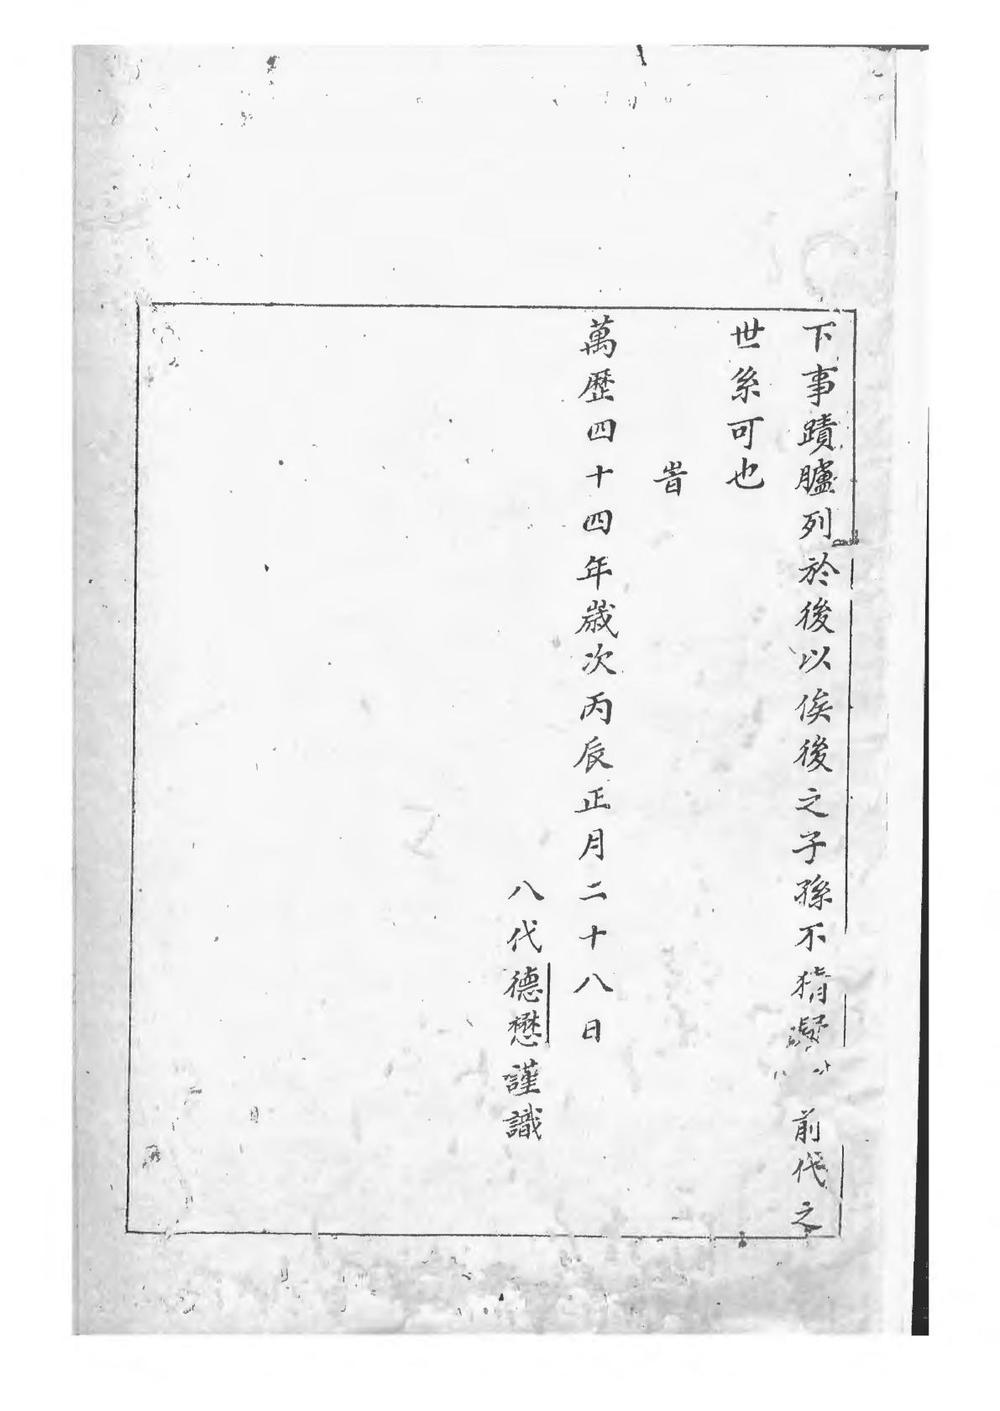 下事蹟臚列於後以俟後之子孫不猜疑前代之
世系可也
旹
萬歷四十四年歲次丙辰正月二十八日
八代德懋謹識